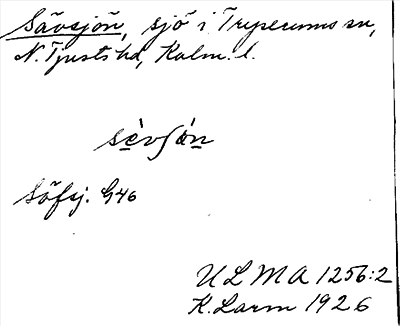 Sävsjön, sjö i Tryserums sn,
N. Tjusts hd, Kalm. l.
sèvʃön
Söfsj. G46
ULMA 1256:2
K. Larm 1926